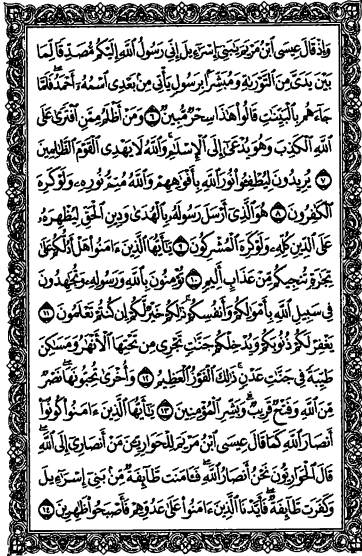 وَإِذْ قَالَ عِيسَى ابْنُ مَرْيَمَ يَٰبَنِىٓ إِسْرَٰٓءِيلَ إِنِّى رَسُولُ ٱللَّهِ إِلَيْكُم مُّصَدِّقًا لِّمَا
بَيْنَ يَدَىَّ مِنَ ٱلتَّوْرَىٰةِ وَمُبَشِّرًۢا بِرَسُولٍ يَأْتِى مِنۢ بَعْدِى ٱسْمُهُۥٓ أَحْمَدُ ۖ فَلَمَّا
جَآءَهُم بِٱلْبَيِّنَٰتِ قَالُوا۟ هَٰذَا سِحْرٌ مُّبِينٌ ٦ وَمَنْ أَظْلَمُ مِمَّنِ ٱفْتَرَىٰ عَلَى
ٱللَّهِ ٱلْكَذِبَ وَهُوَ يُدْعَىٰٓ إِلَى ٱلْإِسْلَٰمِ ۚ وَٱللَّهُ لَا يَهْدِى ٱلْقَوْمَ ٱلظَّٰلِمِينَ
٧ يُرِيدُونَ لِيُطْفِـُٔوا۟ نُورَ ٱللَّهِ بِأَفْوَٰهِهِمْ وَٱللَّهُ مُتِمُّ نُورِهِۦ وَلَوْ كَرِهَ
ٱلْكَٰفِرُونَ ٨ هُوَ ٱلَّذِىٓ أَرْسَلَ رَسُولَهُۥ بِٱلْهُدَىٰ وَدِينِ ٱلْحَقِّ لِيُظْهِرَهُۥ
عَلَى ٱلدِّينِ كُلِّهِۦ وَلَوْ كَرِهَ ٱلْمُشْرِكُونَ ٩ يَٰٓأَيُّهَا ٱلَّذِينَ ءَامَنُوا۟ هَلْ أَدُلُّكُمْ عَلَىٰ
تِجَٰرَةٍ تُنجِيكُم مِّنْ عَذَابٍ أَلِيمٍ ١٠ تُؤْمِنُونَ بِٱللَّهِ وَرَسُولِهِۦ وَتُجَٰهِدُونَ
فِى سَبِيلِ ٱللَّهِ بِأَمْوَٰلِكُمْ وَأَنفُسِكُمْ ۚ ذَٰلِكُمْ خَيْرٌ لَّكُمْ إِن كُنتُمْ تَعْلَمُونَ ١١
يَغْفِرْ لَكُمْ ذُنُوبَكُمْ وَيُدْخِلْكُمْ جَنَّٰتٍ تَجْرِى مِن تَحْتِهَا ٱلْأَنْهَٰرُ وَمَسَٰكِنَ
طَيِّبَةً فِى جَنَّٰتِ عَدْنٍ ۚ ذَٰلِكَ ٱلْفَوْزُ ٱلْعَظِيمُ ١٢ وَأُخْرَىٰ تُحِبُّونَهَا ۖ نَصْرٌ
مِّنَ ٱللَّهِ وَفَتْحٌ قَرِيبٌ ۗ وَبَشِّرِ ٱلْمُؤْمِنِينَ ١٣ يَٰٓأَيُّهَا ٱلَّذِينَ ءَامَنُوا۟ كُونُوٓا۟
أَنصَارَ ٱللَّهِ كَمَا قَالَ عِيسَى ٱبْنُ مَرْيَمَ لِلْحَوَارِيِّۦنَ مَنْ أَنصَارِىٓ إِلَى ٱللَّهِ ۖ
قَالَ ٱلْحَوَارِيُّونَ نَحْنُ أَنصَارُ ٱللَّهِ ۖ فَـَٔامَنَت طَّآئِفَةٌ مِّنۢ بَنِىٓ إِسْرَٰٓءِيلَ
وَكَفَرَت طَّآئِفَةٌ ۖ فَأَيَّدْنَا ٱلَّذِينَ ءَامَنُوا۟ عَلَىٰ عَدُوِّهِمْ فَأَصْبَحُوا۟ ظَٰهِرِينَ ١٤